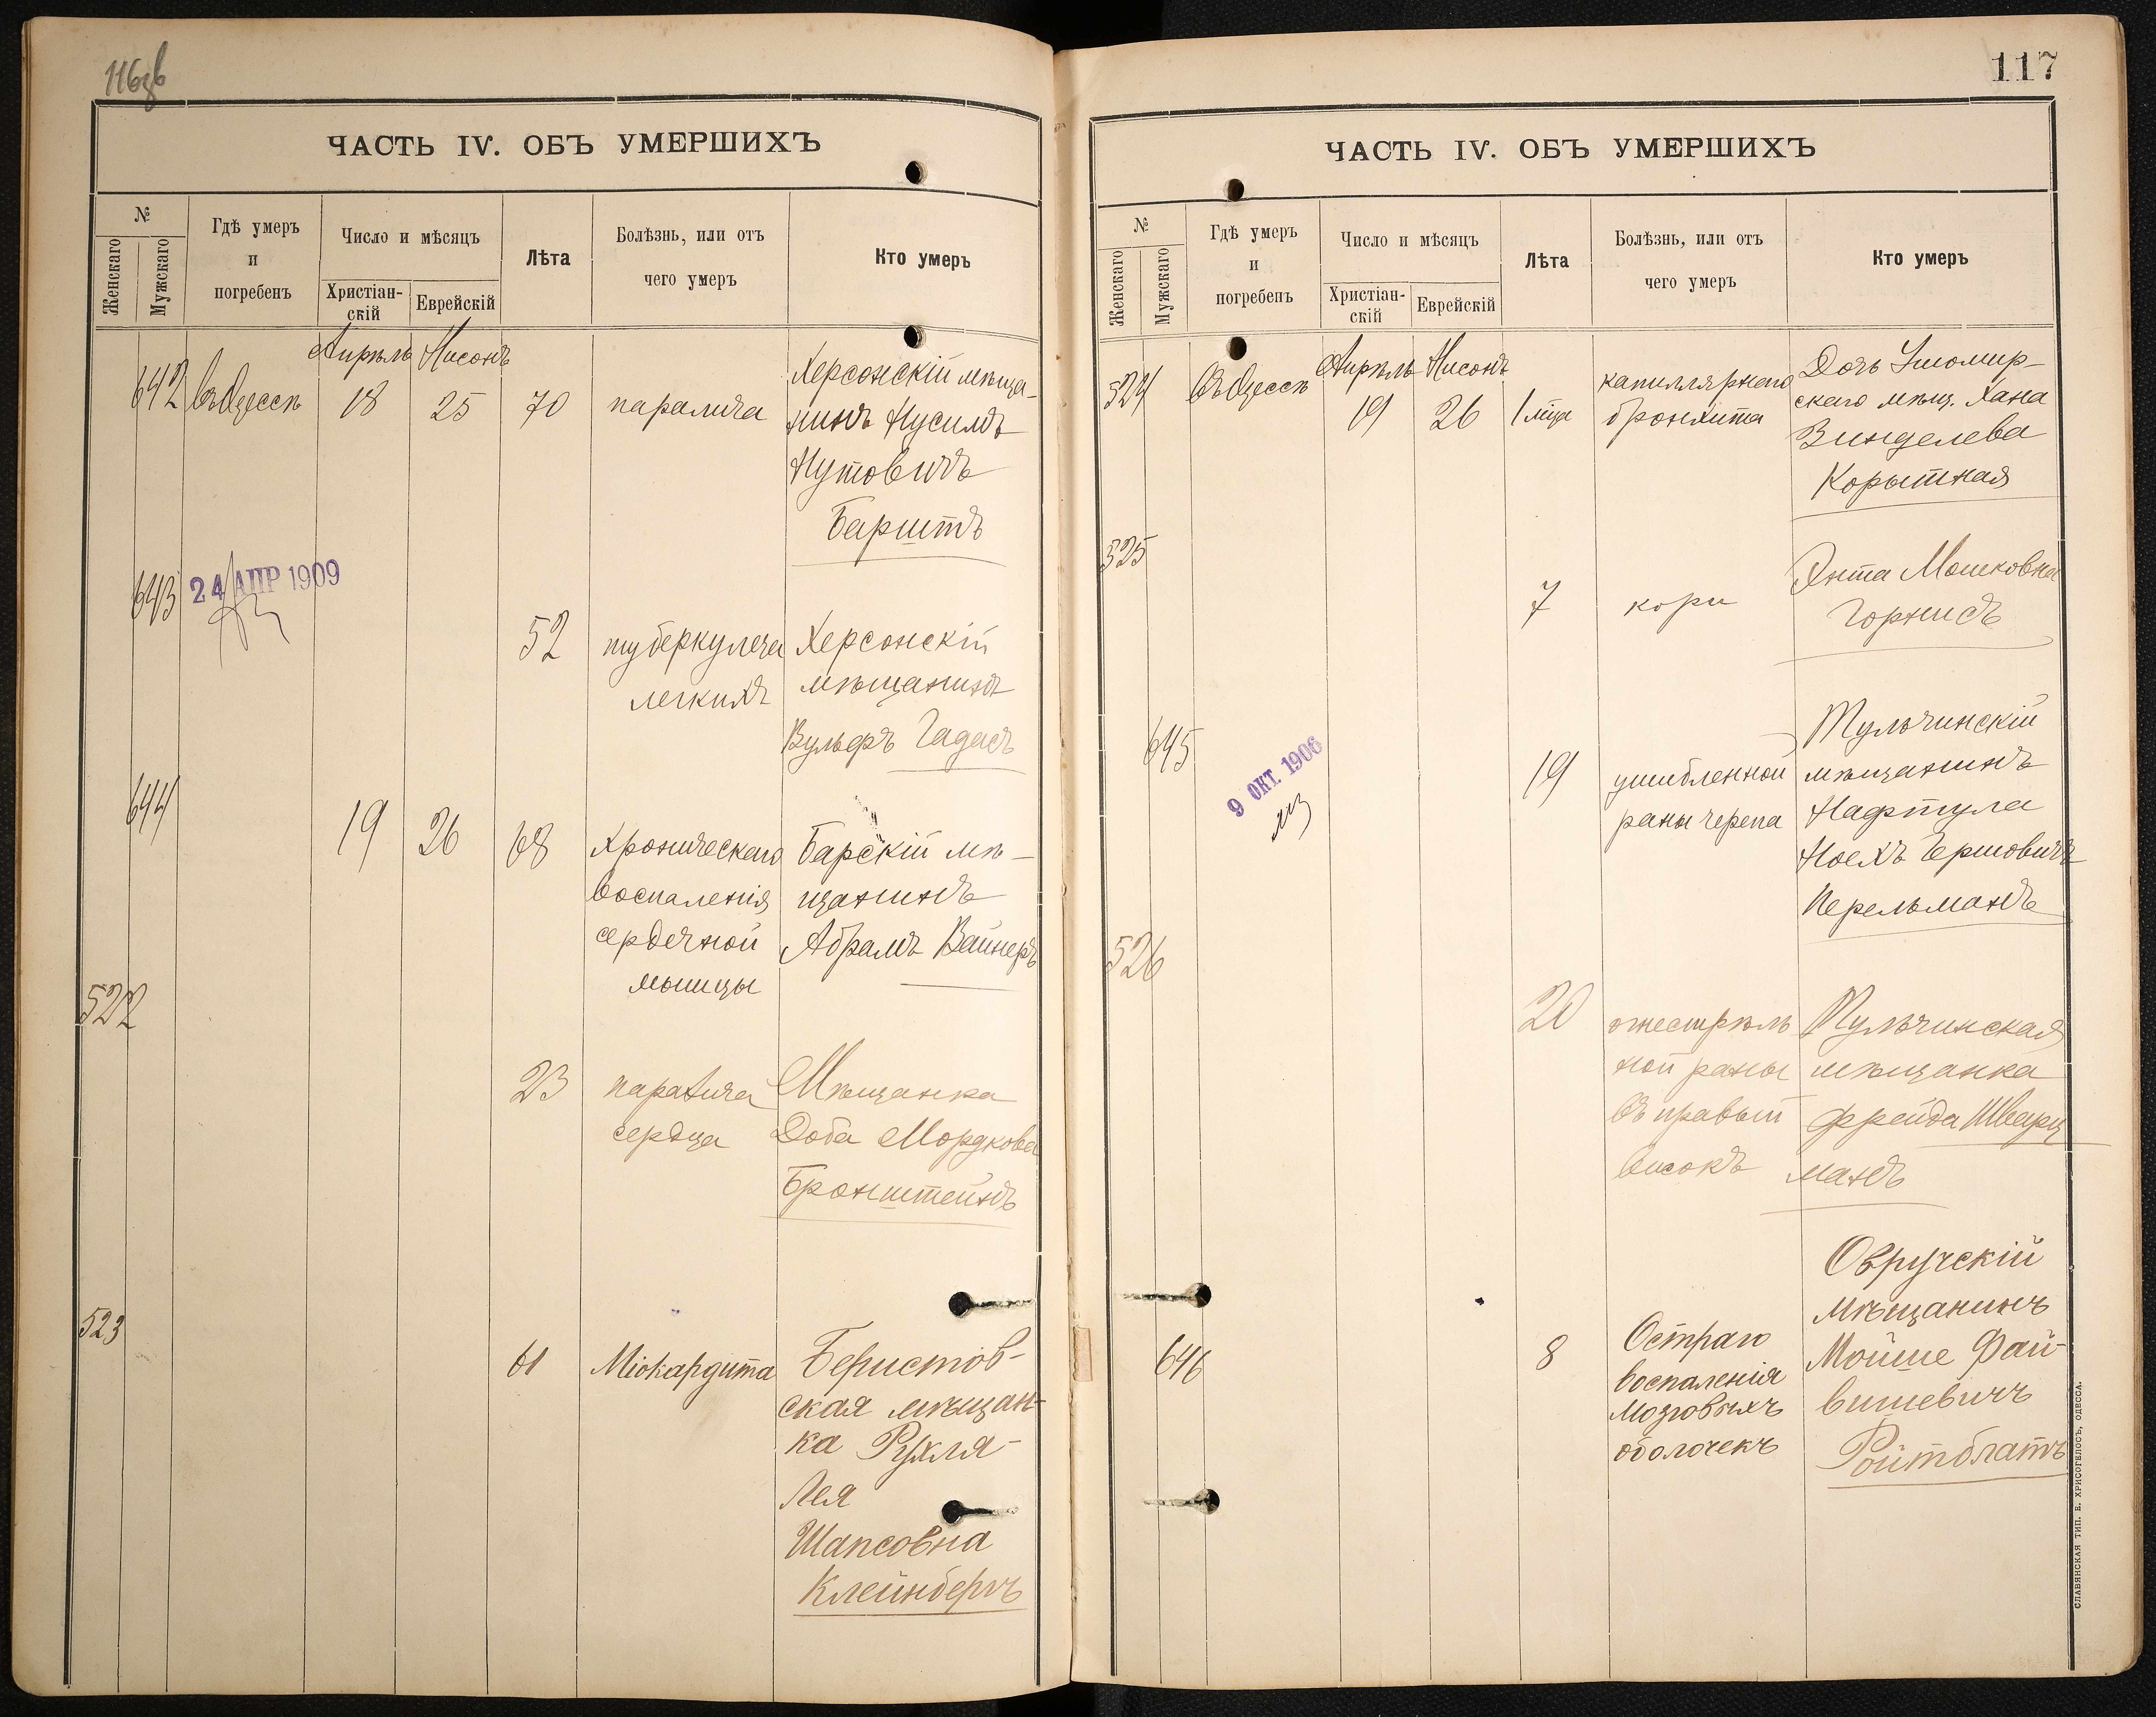 116об
ЧАСТЬ IV. ОБЪ УМЕРШИХЪ
№
Женскаго
Мужскаго
Гдѣ умеръ
и
погребенъ
Число и мѣсяцъ
Христіан-
скій
Еврейскій
Лѣта
Болѣзнь, или отъ
чего умеръ
Кто умеръ
Апрѣль Нисонъ
642 въ Одессѣ 18 25 70 паралича
Херсонскій мѣща-
нинъ Нусимъ
Нутовичъ
Барштъ
643
24 АПР 1909
52 туберкулеза Херсонскій
легкихъ мѣщанинъ
Вульфъ Гадасъ
644
19 26 68 Хроническаго Барскій мѣ-
воспаленія щанинъ
сердечной Абрамъ Вайнеръ
мышцы
522
23 паралича Мѣщанка
сердца Доба Мордкова
Бронштейнъ
523
61 Міокардита
Ская мѣщан-
ка Рухля-
Лея
Шапсовна
Клейнбергъ
117
ЧАСТЬ IV. ОБЪ УМЕРШИХЪ
№
Женскаго
Мужскаго
Гдѣ умеръ
и
погребенъ
Число и мѣсяцъ
Христіан-
скій
Еврейскій
Лѣта
Болѣзнь, или отъ
чего умеръ
Кто умеръ
Апрѣль Нисонъ
524 Въ Одессѣ 19 26 1 мца
капиллярнаго
бронхита
Дочь
скаго мѣщ. Хана
Винделева
Корытная
525
7 кори
Янта Мошковна
Горнисъ
645
9 ОКТ. 1906
19 ушибленной
раны черепа
Тульчинскій
мѣщанинъ
Нафтула
Ноехъ Гершовичъ
Перельманъ
526
20 огнестрѣль
ной раны
въ правый
високъ
Тульчинская
мѣщанка
Фрейда Шварц
манъ
646
8 Остраго
воспаленія
мозговыхъ
оболочекъ
Овручскій
Мѣщанинъ
Мойше Фай-
вишевичъ
Ройтблатъ
СЛАВЯНСКАЯ ТИП. Е. ХРИСОГЕЛОСЪ, ОДЕССА.